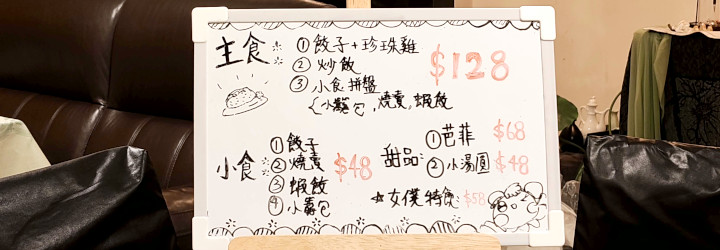 主食:
① 餃子+珍珠雞
② 炒飯
③ 小食拼盤
(小籠包,燒賣,蝦餃
$128
小食:
① 餃子
② 燒賣
③ 蝦餃
④ 小籠包
$48
甜品:
① 芭菲 $68
② 小湯圓 $48
☆女僕特飲: $58